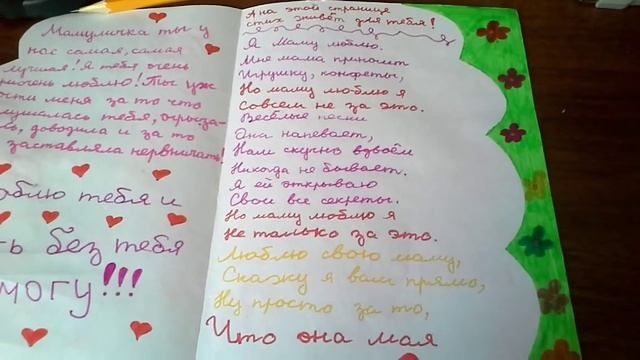 Мамуличка ты у
нас самая, самая
лучшая! Я тебя очень
очень люблю! Ты уж
прости меня за то что
слушалась тебя, огрыза-
лась, доводила и за то
заставляла нервничать!
люблю тебя и
без тебя
могу!!!
А на этой странице
стих живёт для тебя!
Я маму люблю.
Мне мама приносит
Игрушки, конфеты,
Но маму люблю я
Совсем не за это.
Весёлые песни
Она напевает,
Нам скучно вдвоём
Никогда не бывает.
Я ей открываю
Свои все секреты.
Но маму люблю я
Не только за это.
Люблю свою маму,
Скажу я вам прямо,
Ну просто за то,
Что она моя